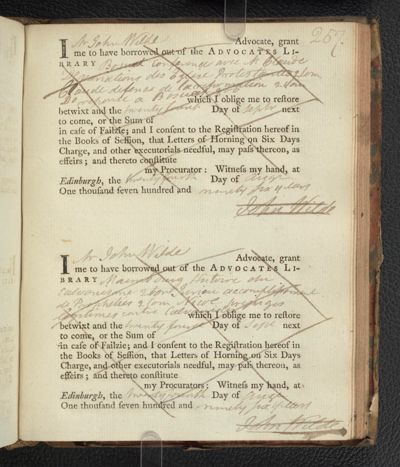 257
I Mr John Wilde Advocate, grant
me to have borrowed out of the ADVOCATES LI-
BRARY Bossuet Conference avec M. Claude
des Eglises Protestantes 2 tom
Claude defense de la reformation 2 tom
Reponse a Bossuet
which I oblige me to restore
betwixt and the twenty fourth Day of Septr next
to come, or the Sum of
in case of Failzie; and I consent to the Registration hereof in
the Books of Session, that Letters of Horning on Six Days
Charge, and other executorials needful, may pass thereon, as
effeirs; and thereto constitute
my Procurator: Witness my hand, at
Edinburgh, the twenty fourth Day of
One thousand seven hundred and ninety six years
John Wilde
I Mr John Wilde Advocate, grant
me to have borrowed out of the ADVOCATES LI-
BRARY Maimbourg Histoire du
Calvinisme 2 tom. Jurieu accomplissement
de Propheties 2 tom
which I oblige me to restore
betwixt and the twenty fourth Day of Septr next
to come, or the Sum of
in case of Failzie; and I consent to the Registration hereof in
the Books of Session, that Letters of Horning on Six Days
Charge, and other executorials needful, may pass thereon, as
effeirs; and thereto constitute
my Procurators: Witness my hand, at
Edinburgh, the twenty fourth Day of
One thousand seven hundred and ninety six years
John Wilde